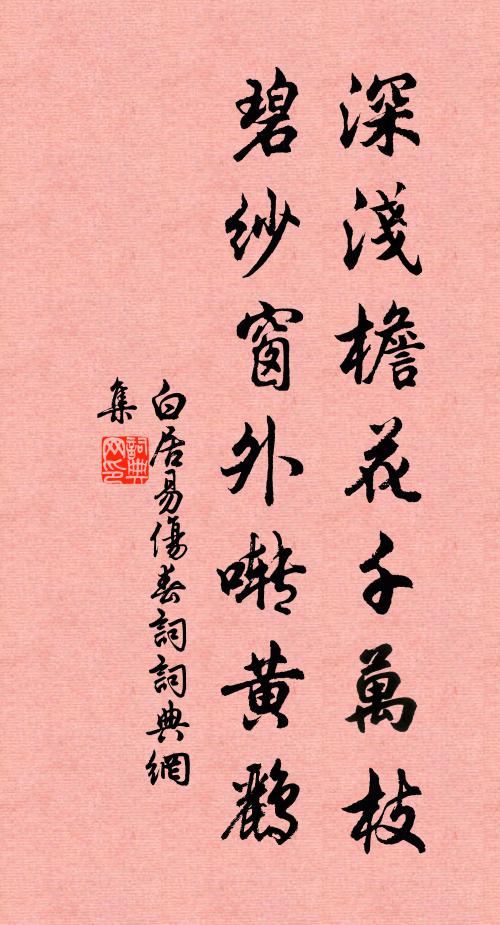 深淺檐花千萬枝
碧紗窗外囀黃鸝
白居易傷春詞詞典網
集
詞典
网印